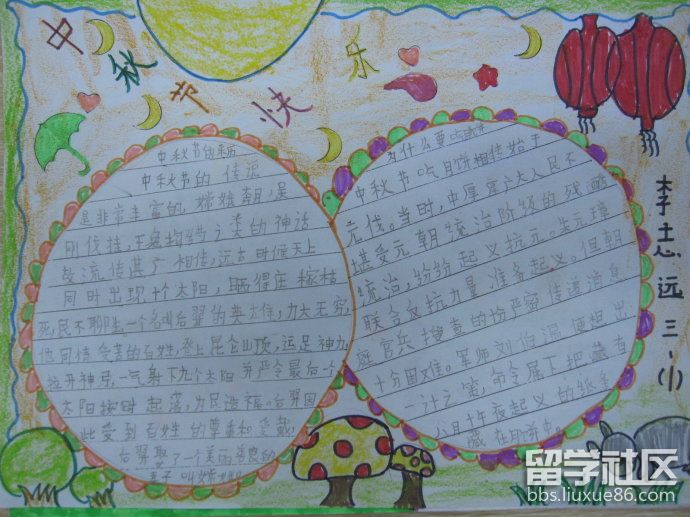 中秋节快乐
中秋节的来历
中秋节的传说
是非常丰富的,嫦娥奔月,吴
刚伐桂,玉兔捣药之类的神话
故流传甚广相传,远古时候天上
同时出现十个太阳,晒得庄稼枯
死,民不聊生一个名叫后羿的英雄,力大无穷,
他同情受苦的百姓,登上昆仑山顶,运足神力
拉开神弓,一气射下九个太阳并严令最后一个
太阳按时起落,为民造福。后羿因
此受到百姓的尊重和爱戴,
后羿娶了一个美丽善良的
妻子叫嫦娥
为什么要吃月饼
中秋节吃月饼相传始于
元代。当时,中原广大人民不
堪受元朝统治阶级的残酷
统治,纷纷起义抗元。朱元璋
联合反抗力量准备起义。但朝
庭官兵搜查的份严密传递消息
十分困难。军师刘伯温便想出
一计之策,命令属下把藏有
八月十五夜起义的纸条
藏在月饼中。
李志远三(1)
留学社区
bbs.liuxue86.com